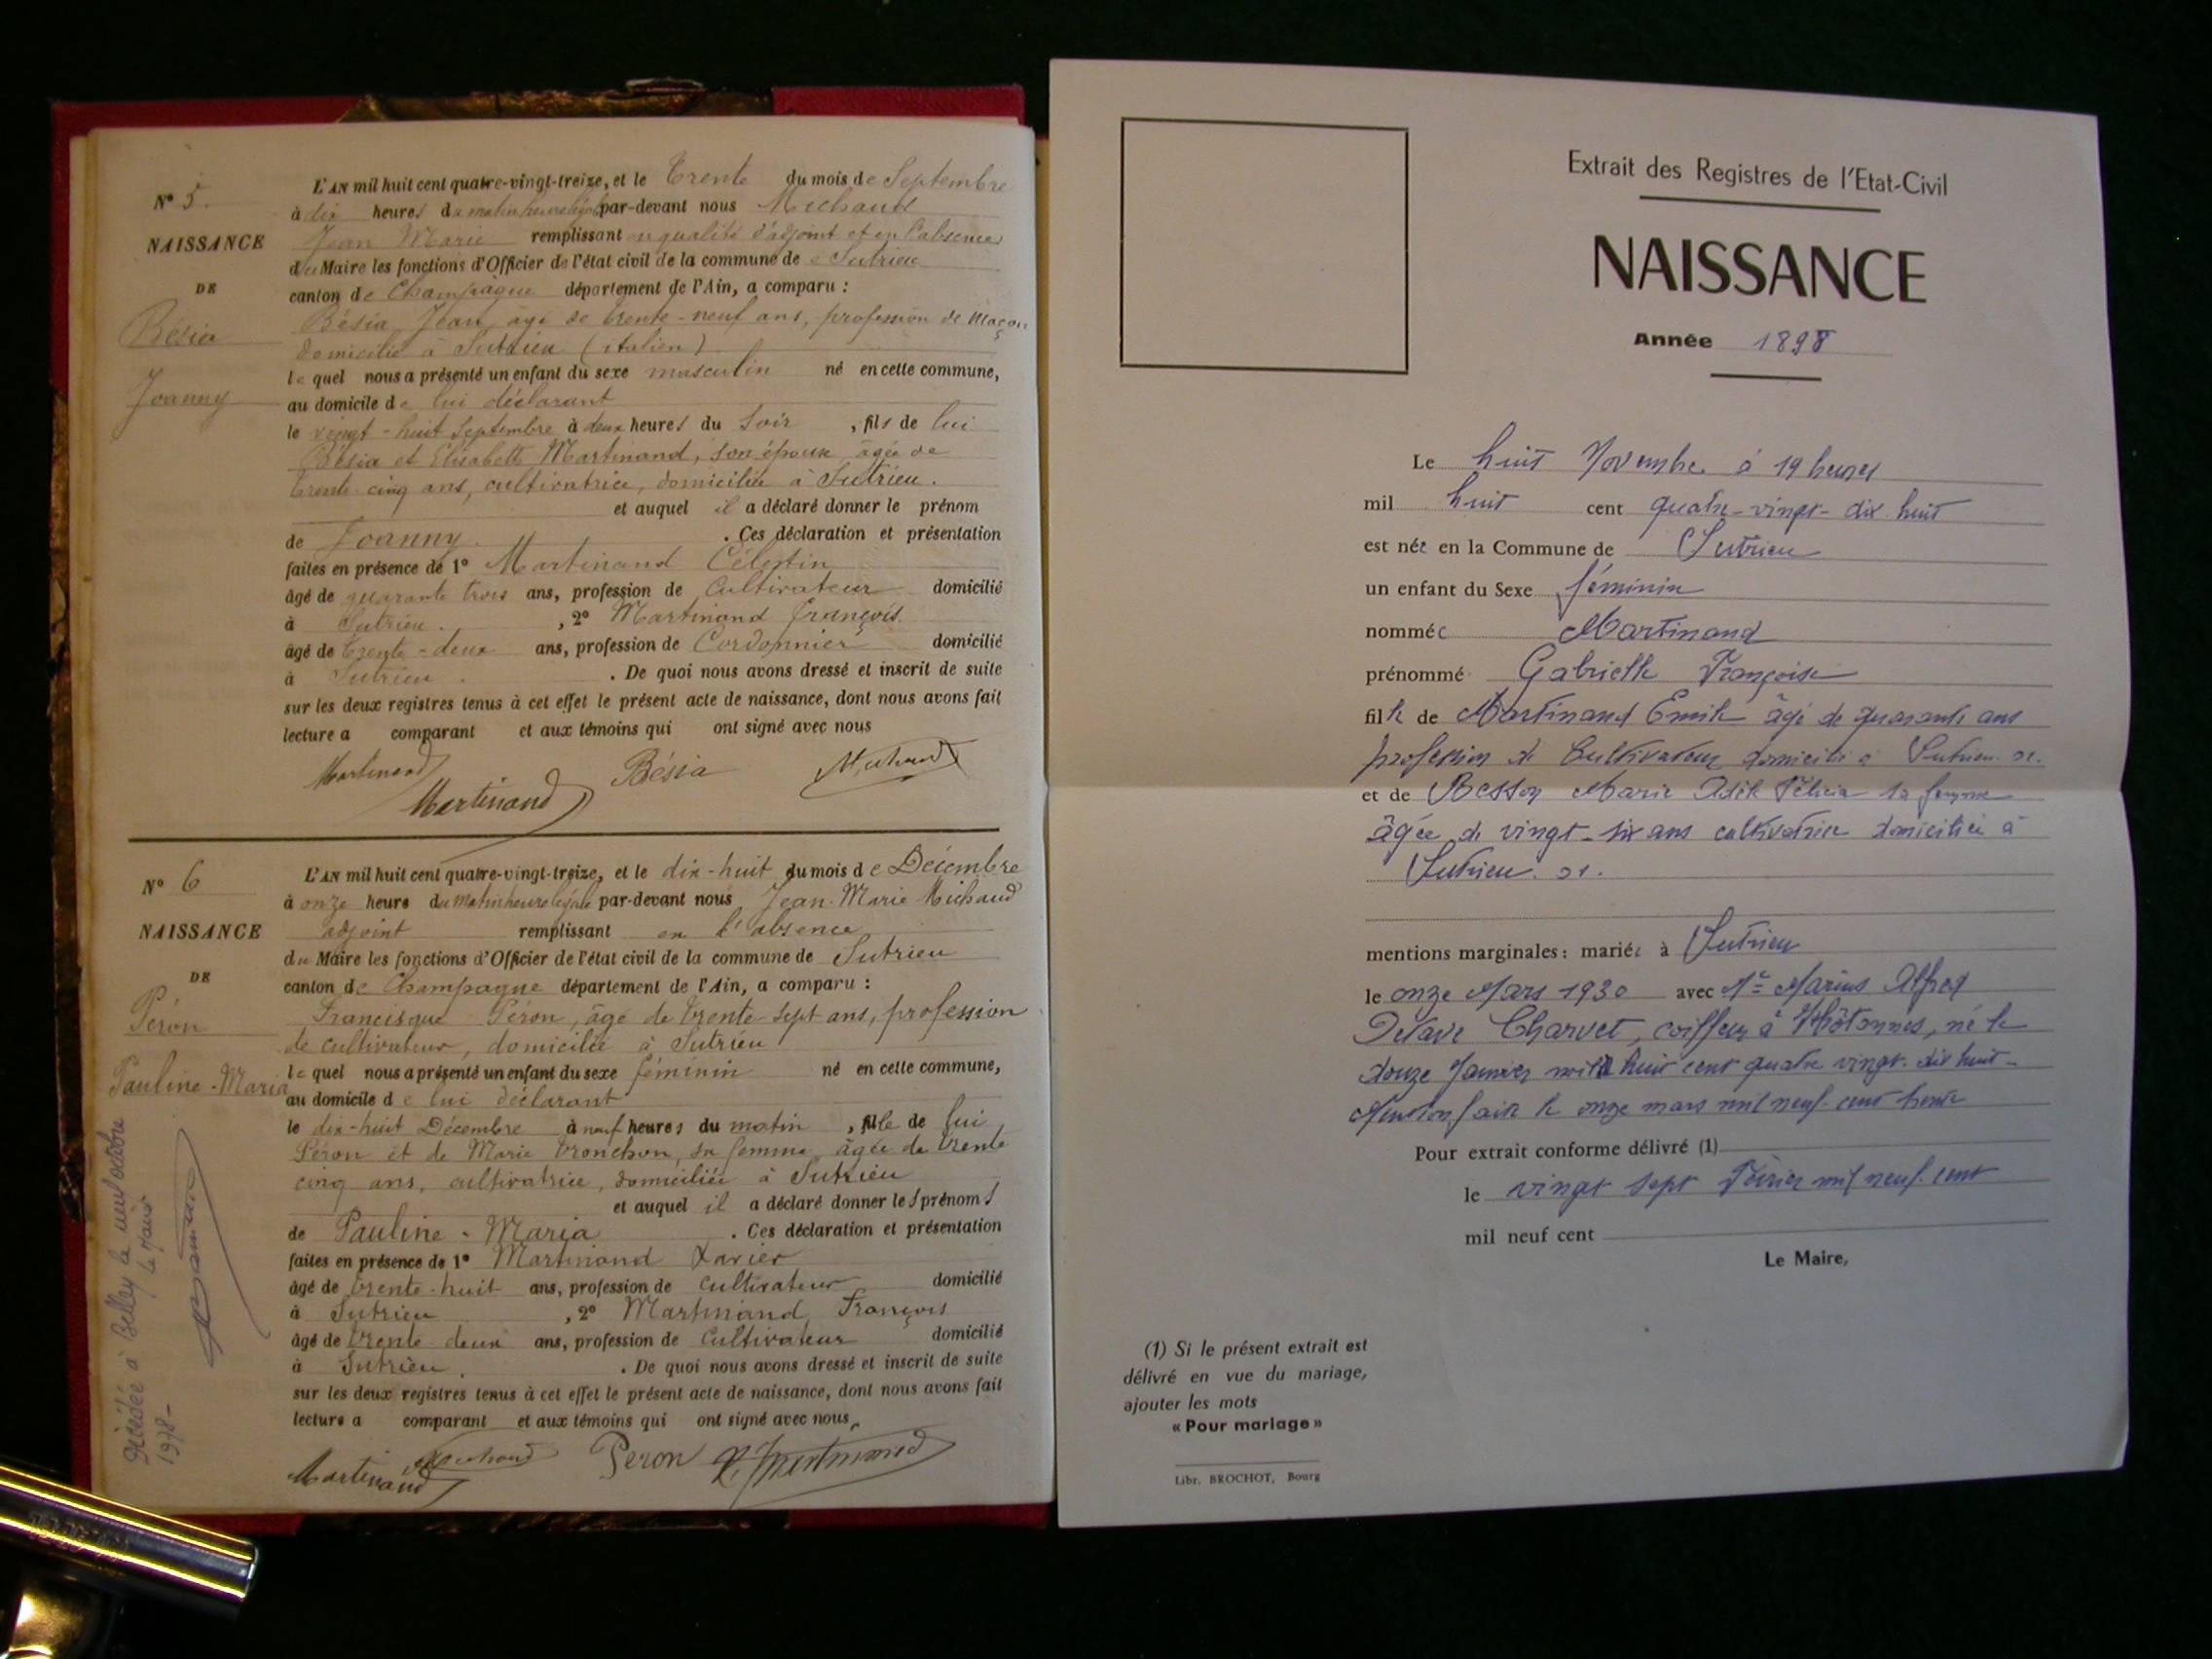 N° 5.
NAISSANCE
DE
Bésia
Joanny
L'AN mil huit cent quatre-vingt-treize, et le Trente du mois de Septembre
à dix heures du matin heure légale par-devant nous Michaud
Jean Marie remplissant en qualité d'adjoint et en l'absence
du Maire les fonctions d'Officier de l'état civil de la commune de Sutrieu
canton de Champagne département de l'Ain, a comparu :
Bésia Jean, âgé de trente-neuf ans, profession de Maçon
domicilié à Sutrieu (italien)
lequel nous a présenté un enfant du sexe masculin né en cette commune,
au domicile de lui déclarant
le vingt-huit Septembre à deux heures du soir, fils de lui
Bésia et Elisabeth Martinand, son épouse, âgée de
trente-cinq ans, cultivatrice, domiciliée à Sutrieu.
et auquel il a déclaré donner le prénom
de Joanny. . Ces déclaration et présentation
faites en présence de 1° Martinand Célestin
âgé de quarante trois ans, profession de Cultivateur domicilié
à Sutrieu. , 2° Martinand François.
âgé de trente-deux ans, profession de Cordonnier domicilié
à Sutrieu. . De quoi nous avons dressé et inscrit de suite
sur les deux registres tenus à cet effet le présent acte de naissance, dont nous avons fait
lecture a comparant et aux témoins qui ont signé avec nous
Martinand Bésia Michaud
Martinand
N° 6
NAISSANCE
DE
Péron
Pauline-Maria
Décédée à Belley le neuf octobre
1978-
Le Maire
L'AN mil huit cent quatre-vingt-treize, et le dix-huit du mois de Décembre
à onze heure du matin heure légale par-devant nous Jean-Marie Michaud
adjoint remplissant en l'absence
du Maire les fonctions d'Officier de l'état civil de la commune de Sutrieu
canton de Champagne département de l'Ain, a comparu :
Francisque Péron, âgé de trente-sept ans, profession
de cultivateur, domicilié à Sutrieu
lequel nous a présenté un enfant du sexe féminin né en cette commune,
au domicile de lui déclarant
le dix-huit Décembre à neuf heures du matin, fille de lui
Péron et de Marie Tronchon, sa femme, âgée de trente
cinq ans, cultivatrice, domiciliée à Sutrieu
et auquel il a déclaré donner les prénoms
de Pauline-Maria . Ces déclaration et présentation
faites en présence de 1° Martinand Xavier
âgé de trente-huit ans, profession de cultivateur domicilié
à Sutrieu , 2° Martinand François
âgé de trente-deux ans, profession de Cultivateur domicilié
à Sutrieu. . De quoi nous avons dressé et inscrit de suite
sur les deux registres tenus à cet effet le présent acte de naissance, dont nous avons fait
lecture a comparant et aux témoins qui ont signé avec nous.
Martinand Michaud Peron X. Martinand
Extrait des Registres de l'Etat-Civil
NAISSANCE
Année 1898
Le huit Novembre à 19 heures
mil huit cent quatre-vingt-dix huit
est née en la Commune de Sutrieu
un enfant du Sexe féminin
nommée Martinand
prénommé Gabrielle Françoise
fille de Martinand Emile âgé de quarante ans
profession de Cultivateur domicilié à Sutrieu
et de Besson Marie Adèle Félicia sa femme
âgée de vingt-six ans cultivatrice domiciliée à
Sutrieu
mentions marginales : mariée à Sutrieu
le onze Mars 1930 avec Mr Marius Alfred
Octave Charvet, coiffeur à Hotonnes, né le
douze Janvier mil huit cent quatre vingt dix huit-
Mention faite le onze mars mil neuf cent trente
Pour extrait conforme délivré (1)
le vingt sept Février mil neuf cent
mil neuf cent
Le Maire,
(1) Si le présent extrait est
délivré en vue du mariage,
ajouter les mots
« Pour mariage »
Libr. BROCHOT, Bourg